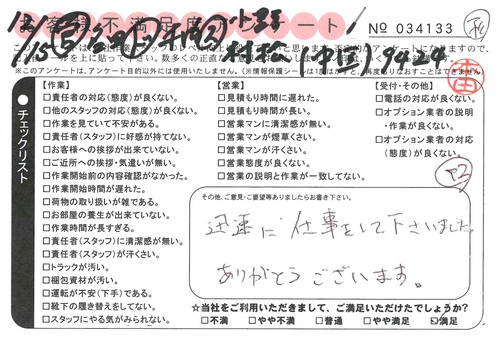 お客様不満足度アンケート
No 034133
【作業】
□責任者の対応(態度)が良くない。
□他のスタッフの対応(態度)が良くない。
□作業を見ていて不安がある。
□責任者(スタッフ)に好感が持てない。
□お客様への挨拶が出来ていない。
□ご近所への挨拶・気遣いが無い。
□作業開始前の内容確認がなかった。
□作業開始時間が遅れた。
□荷物の取り扱いが雑である。
□お部屋の養生が出来ていない。
□作業時間が長すぎる。
□責任者(スタッフ)に清潔感が無い。
□責任者(スタッフ)が汗くさい。
□トラックが汚い。
□梱包資材が汚い。
□運転が不安(下手)である。
□靴下の履き替えをしてない。
□スタッフにやる気がみられない。
【営業】
□見積もり時間に遅れた。
□見積もり時間が長い。
□営業マンに清潔感が無い。
□営業マンが煙草くさい。
□営業マンが汗くさい。
□営業態度が良くない。
□営業の説明と作業が一致してない。
【受付・その他】
□電話の対応が良くない。
□オプション業者の説明
・作業が良くない。
□オプション業者の対応
(態度)が良くない。
チェックリスト
その他、ご意見・ご要望等ありましたらお書き下さい。
迅速に仕事をして下さいました。
ありがとうございます。
☆当社をご利用いただきまして、ご満足いただけたでしょうか?
□不満 □やや不満 □普通 □やや満足 ☑満足